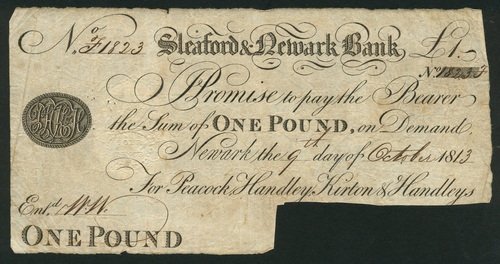 No. F1823 Sleaford & Newark Bank, £1.
No. 1823 F
I Promise to pay the Bearer
the Sum of ONE POUND, on Demand.
Newark the 9th day of October 1813
For Peacock, Handley, Kirton & Handleys
Entd. W.W.
ONE POUND